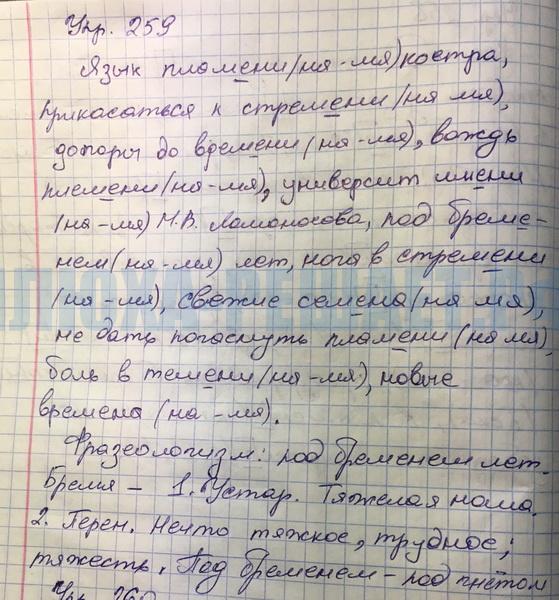 Упр. 259
Язык пламени (на -мя) костра,
прикасаться к стремени (на мя),
до поры до времени (на -мя), вождь
племени (на -мя), университ имени
(на -мя) М.В. Ломоносова, под бреме-
нем (на -мя) лет, нога в стремени
(на -мя), свежие семена (на мя),
не дать погаснуть пламени (на мя)
боль в темени (на -мя), новые
времена (на -мя).
Фразеологизм: под бременем лет.
Бремя - 1. Устар. Тяжелая ноша.
2. Перен. Нечто тяжкое, трудное;
тяжесть. Под бременем - под гнётом
Упр. 260